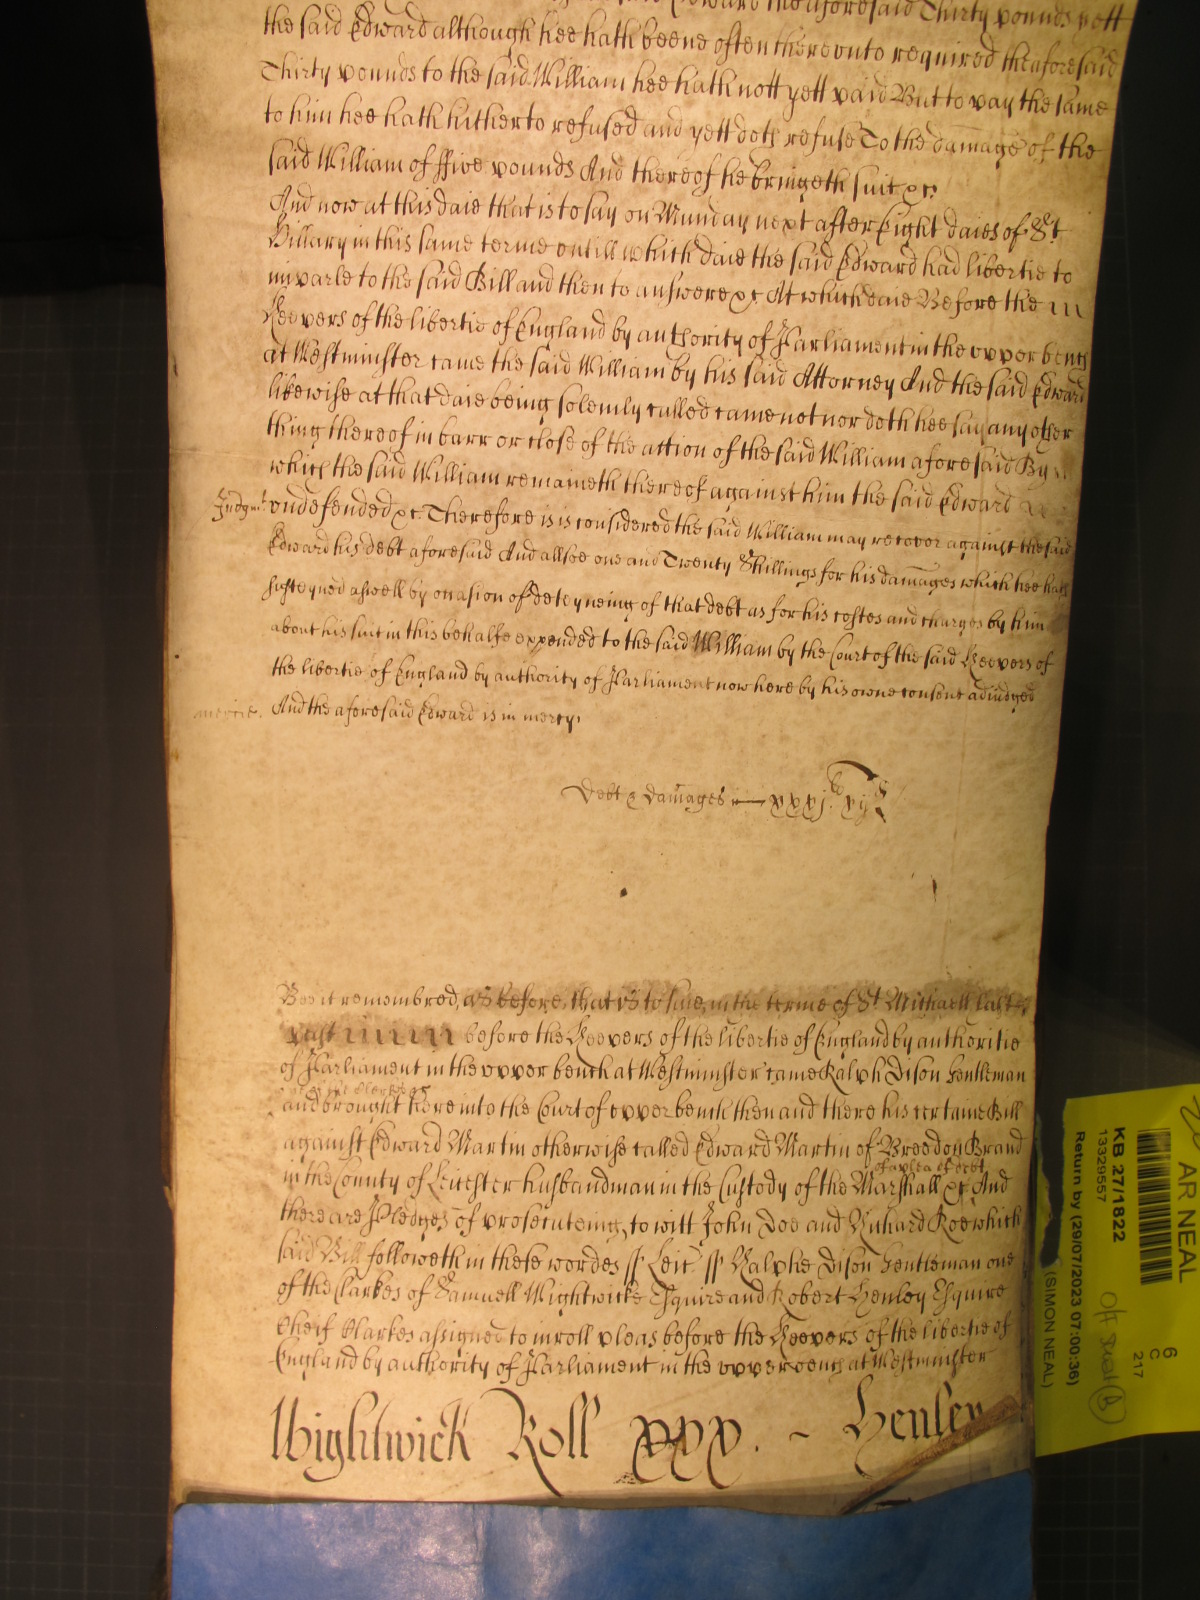 the said Edward the aforesaid Thirty pounds yett
the said Edward although hee hath beene often thereunto required the aforesaid
Thirty pounds to the said William hee hath nott yett paid But to pay the same
to him hee hath hitherto refused and yett doth refuse To the damage of the
said William of ffive pounds And thereof he bringeth suit &c
And now at this daie that is to say on Munday next after Eight daies of St
Hillary in this same terme untill which daie the said Edward had libertie to
imparle to the said Bill and then to answere &c At which daie Before the
Keepers of the libertie of England by authority of Parliament in the upper bench
at Westminster came the said William by his said Attorney And the said Edward
likewise at that daie being solemly called came not nor doth hee say any other
thing thereof in barr or close of the action of the said William aforesaid By
which the said William remaineth thereof against him the said Edward
Judgmt undefended &c Therefore is is considered the said William may recover against the said
Edward his debt aforesaid And allsoe one and Twenty Shillings for his damages which hee hath
susteyned aswell by occasion of deteyneing of that debt as for his costes and charges by him
about his suit in this behalfe expended to the said William by the Court of the said Keepers of
the libertie of England by authority of Parliament now here by his owne consent adiudged
mercie. And the aforesaid Edward is in mercy
Debt & damages — xxxj li xij
Bee it remembred, as before, that is to saie, in the terme of St Michaell last
past before the Keepers of the libertie of England by authoritie
of Parliament in the upper bench at Westminster came Ralph Dison Gentleman
one of the Clerkes &c
and brought here into the Court of upper bench then and there his certaine Bill
against Edward Martin otherwise called Edward Martin of Breedon Brand
of a plea of debt
in the County of Leicester husbandman in the Custody of the Marshall &c And
there are Pledges of prosecuteing, to witt John Doe and Richard Roe which
said Bill followeth in these wordes ss Leic ss Ralphe Dison Gentleman one
of the Clarkes of Samuell Wightwicke Esquire and Robert Henley Esquire
Cheif Clarkes assigned to inroll pleas before the Keepers of the libertie of
England by authority of Parliament in the upper bench at Westminster
Wightwick Roll xxx. ~ Henley
AR NEAL
KB 27/1822
13329557
Return by (29/07/2023 07:00:36)
(SIMON NEAL)
6
C
217